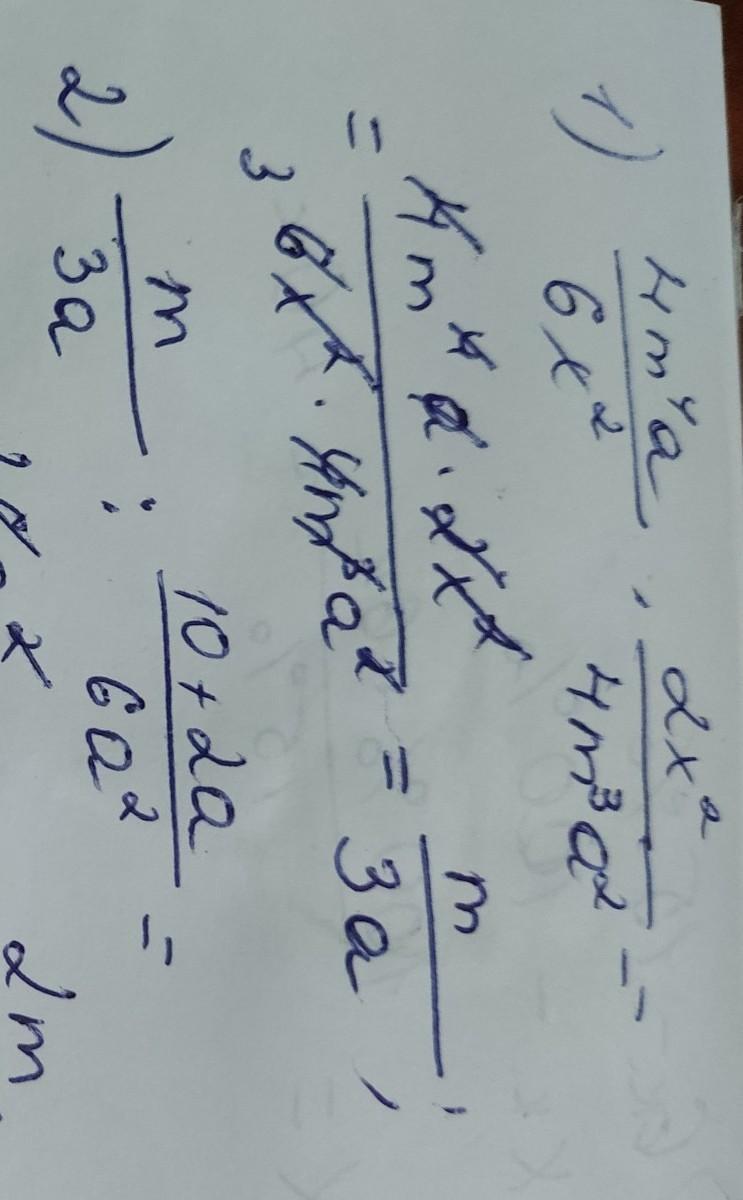 1) 4m⁴a/6x² · 2x²/4m³a² =
= 4m⁴a · 2x²/6x² · 4m³a² = m/3a ;
3
2) m/3a : 10+2a/6a² =
2m